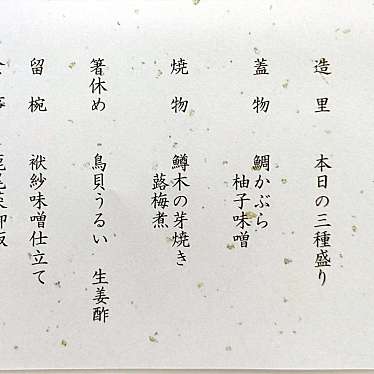 造里　本日の三種盛り
蓋物　鯛かぶら
柚子味噌
焼物　鱒木の芽焼き
蕗梅煮
箸休め　鳥貝うるい　生姜酢
留椀　袱紗味噌仕立て